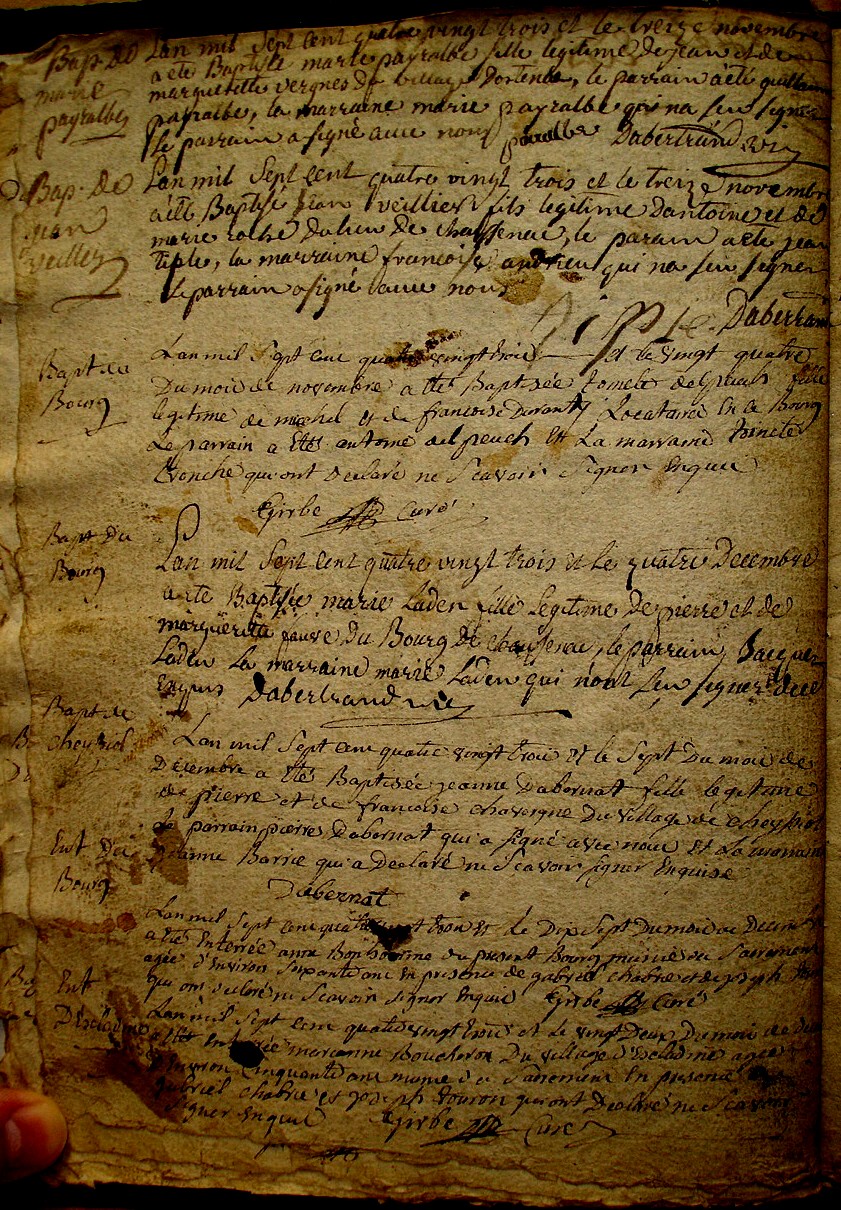 Bap. de
marie
payralbe
Lan mil Sept cent quatre vingt trois et le treize novembre
a ete Baptisée marie payralbe fille legitime de jean et de
margueritte vergnes du village , le parrain a été guillaume
payralbe, la marraine marie payralbe qui na seu signer
le parrain a signé avec nous payralbe Dabertrand vic
Bap. de
jean
veillier
Lan mil Sept Cent quatre vingt trois et le treize novembre
a été Baptisé jean veillier fils legitime dantoine et de
marie du lieu de chaussenac, le parain a ete jean
tiple, la marraine francoise andrieu qui na seu signer
le parrain a signé avec nous
Dabertrand
Bapt du
Bourg
Lan mil Sept cent quatre vingt trois et le vingt quatre
Du mois de novembre a etté Baptisée delpeuch fille
legitime de michel et de francoise Duranty Locataire En ce Bourg
Le parrain a Etté antoine delpeuch Et La marraine
tronche qui ont Declaré ne Scavoir Signer Enquis
Girbe Curé
Bapt du
Bourg
Lan mil Sept Cent quatre vingt trois et le quatre Decembre
a ete Baptisée marie Laden fille Legitime De pierre et de
margueritte faure du Bourg de chaussenac, le parrain Jacques
Laden La marraine marie Laden qui nont seu signer de ce
Enquis Dabertrand vic
Bapt de
cheyssiol
Lan mil Sept cent quatre vingt trois Et le Sept Du mois de
Decembre a Etté Baptisée jeanne Dabernat fille legitime
de pierre et de francoise chavergne Du village de cheyssiol
Le parrain pierre Dabernat qui a signé avec nous et La marraine
jeanne Barrie qui a Declaré ne Scavoir signer Enquise
Dabernat
Ent du
Bourg
Lan mil Sept cent quatre vingt trois Et le Dix Sept Du mois de Decembre
a eté Enterrée anne Bonhomme du present Bourg munie des Sacremens
agée d'Environ Soixante ans En presence de gabriel chabrie et de joseph
qui ont declaré ne Scavoir signer Enquis Girbe Curé
Ent
D'Escladine
Lan mil Sept cent quatre vingt trois et le vingt Deux Du mois de
a etté Enterrée marianne Boucheron Du village d'Escladine agée
d'Environ Cinquante ans munie des Sacremens En presence
gabriel chabrie et joseph touron qui ont Declaré ne Scavoir
Signer Enquis Girbe Curé